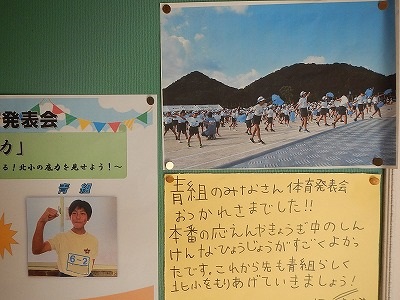 発表会
力」
る！北小の底力を見せよう！～
青組
6-2
青組のみなさん 体育発表会
おつかれさまでした!!
本番の応えんやきょうぎ中のしん
けんなひょうじょうがすごくよかっ
たです。これから先も青組らしく
北小をもりあげていきましょう！